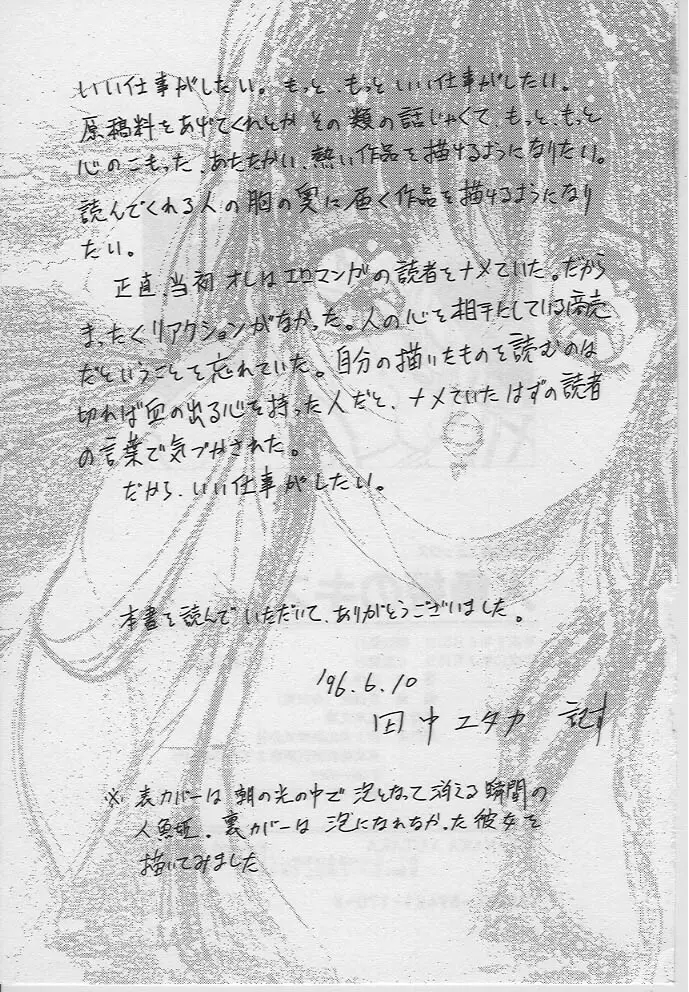 いい仕事がしたい。もっと、もっといい仕事がしたい。
原稿料をあげてくれとか その類の話じゃなくて、もっと、もっと
心のこもった、あたたかい、熱い作品を描けるようになりたい。
読んでくれる人の胸の奥に届く作品を描けるようになり
たい。
正直、当初 オレはエロマンガの読者をナメていた。だから
まったくリアクションがなかった。人の心を相手にしている商売
だということを忘れていた。自分の描いたものを読むのは
切れば血の出る心を持った人だと、ナメていたはずの読者
の言葉で気づかされた。
だから、いい仕事がしたい。
本書を読んでいただいて、ありがとうございました。
'96.6.10
田中ユタカ 記す
※ 表カバーは 朝の光の中で 泡となって 消える瞬間の
人魚姫。裏カバーは 泡になれなかった彼女を
描いてみました